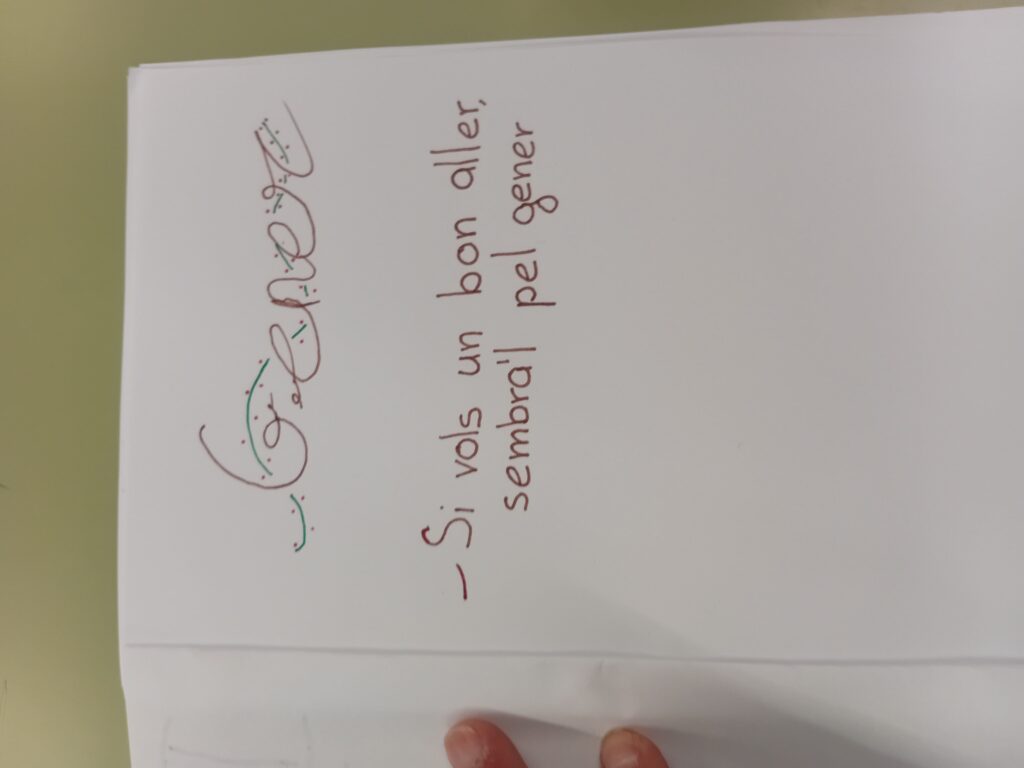 Gener
- Si vols un bon aller,
sembra'l pel gener